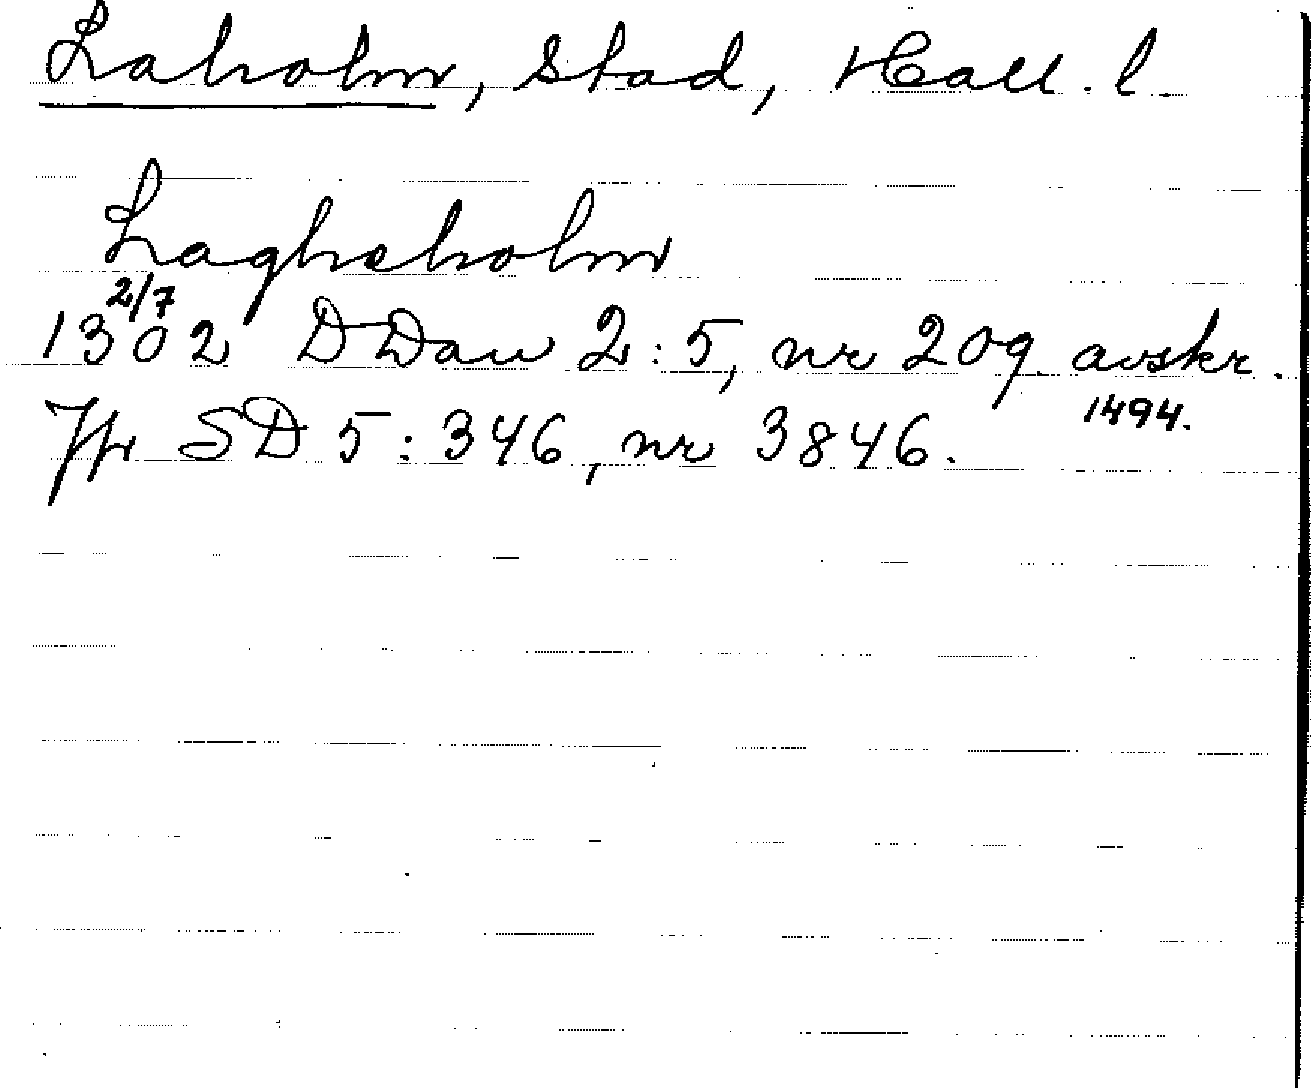 Laholm, stad, Hall. l.
Lagheholm
2/7
1302 DDan 2:5, nr 209. avskr.
1494.
Jfr SD 5:346, nr 3846.